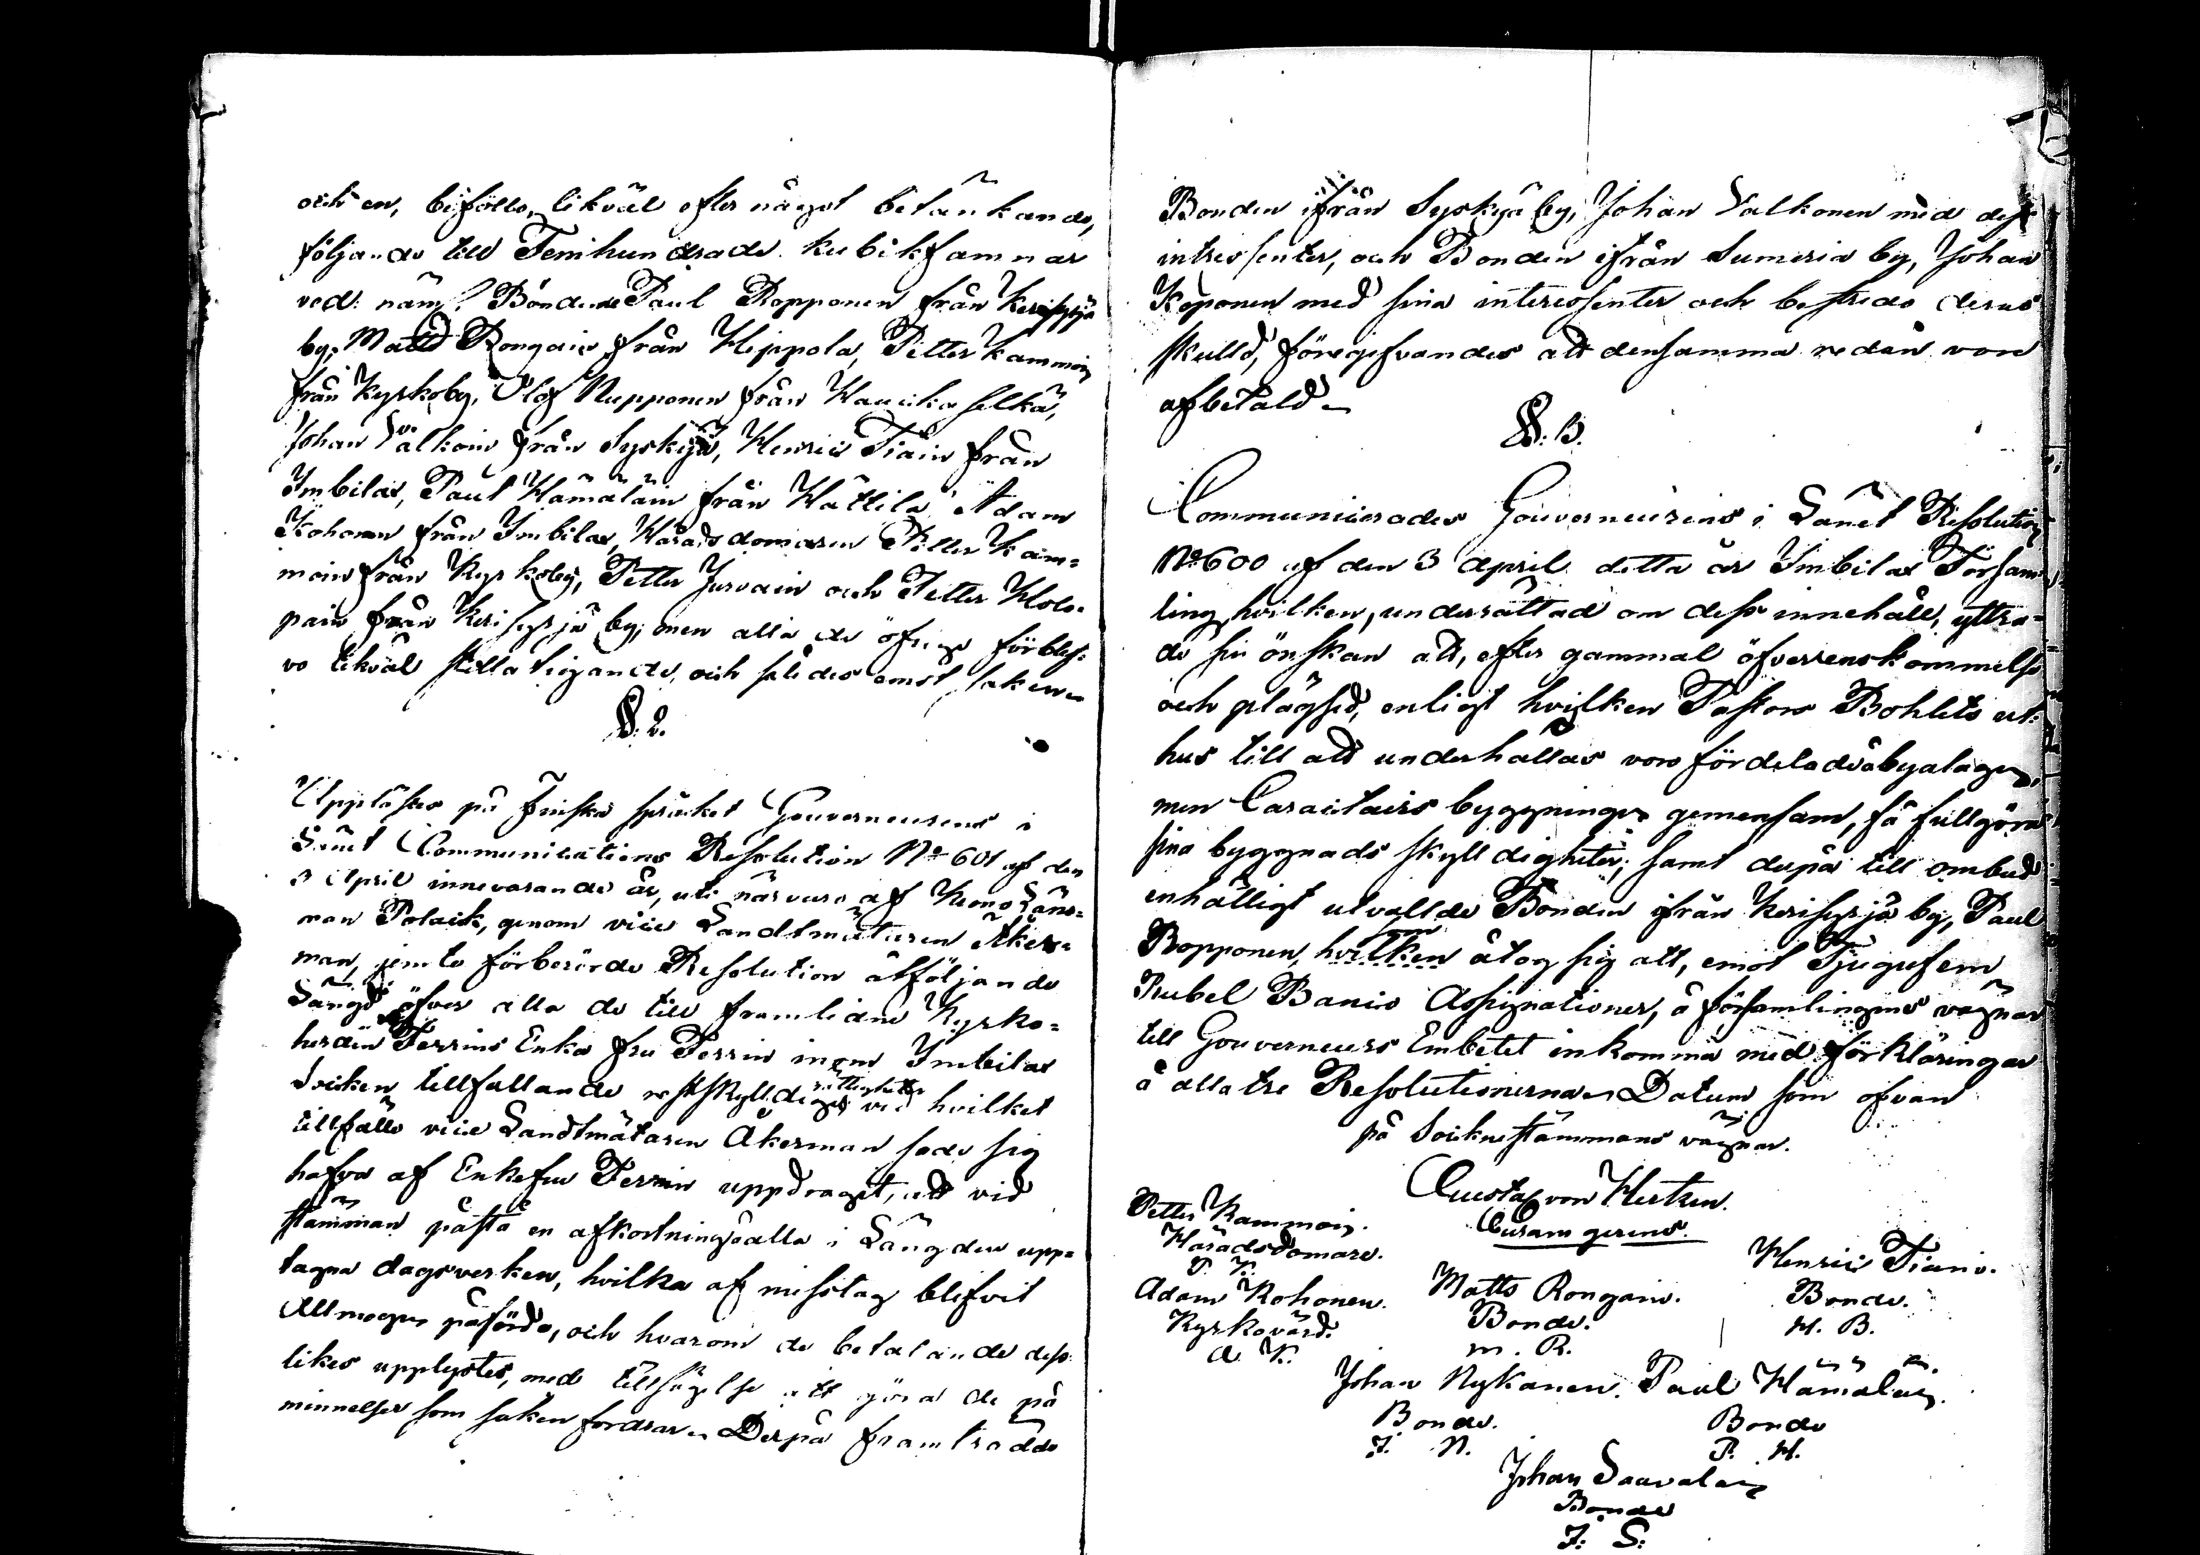 och en, biföllo, likväl efter något betänkande,
följande till Femhundrade kubikfamnar
ved: näml. Bönderne Paul Ropponen från Kerisyrjä
by, Matts Rongain från Hippola, Petter Kammoin
från Kyrkoby, Olof Nupponen från Haukaselkä,
Johan Valkoin från Syskyjä, Henric Tiain från
Imbilax, Paul Hämäläin från Hattila, Adam
Kohonen från Imbilax, Häradsdomaren Petter Kam=
moin från Kyrkoby, Petter Jurvain och Petter Holo=
pain från Kerisyrjä by; men alla de öfrige förblef=
vo likväl stillatigande, och således emot saken.
§. 2.
Upplästes på Finska språket Gouverneurens i
Länet Communications Resolution No 601 af den
3 April innevarande år, uti närvaro af Krono Läns=
man Polack, genom vice Landtmätaren Åker=
man, jemte förberörde Resolution åtföljande
Längd öfver alla de till framlidne Kyrko=
herden Ferrins Enka fru Ferrin inom Imbilax
Socken tillfallande restskyldigheter rättigheter vid hvilket
tillfälle vice Landtmätaren Åkerman sade sig
hafva af Enkefru Ferrin uppdraget, att vid
stämman påstå en afkortning å alla i Längden upp=
tagna dagsverken, hvilka af misstag blifvit
Allmogen påförde, och hvarom de betalande dess=
likes upplystes, med tillsägelse att göra de på
minnelser som saken fordrar. Derpå framträdde
Bonden ifrån Syskyjä by, Johan Valkonen med dess
intressenter, och Bonden ifrån Sumeria by, Johan
Koponen med sina interessenter och bestredo deras
skuld, föregifvandes att densamma redan vore
afbetald.
§. 3.
Communicerades Gouverneurens i Länet Resolution
No 600 af den 3 April detta år Imbilax Församl
ling, hvilken, underrättad om dess innehåll, yttra=
de sin önskan att, efter gammal öfverenskommelse
och plägsed, enligt hvilken Pastors Bohlets ut=
hus till att underhållas voro fördelade å byalagen,
men Caracters byggningen gemensam, få fullgöra
sina byggnads skylldigheter; samt derpå till ombud
enhälligt utvallde Bonden ifrån Kerisyrjä by, Paul
Ropponen, hvilken som åtog sig att, emot Tjugufem
Rubel Banco Assignationer, å församlingens vägnar
till Gouverneurs Embetet inkomma med förklaringar
å alla tre Resolutionerna. Datum som ofvan
på Socknestämmans vägnar.
Gustaf von Hertzen.
Curam gerens.
Petter Kammoin.
Häradsdomare.
P. K.
Adam Kohonen.
Kyrkovärd.
A. K.
Matts Rongain.
Bonde.
M. R.
Henric Tiain.
Bonde.
H. B.
Johan Nykanen. Paul Hämäläin.
Bonde. Bonde
J. N. P. H.
Johan Saavalain
Bonde
J. S.